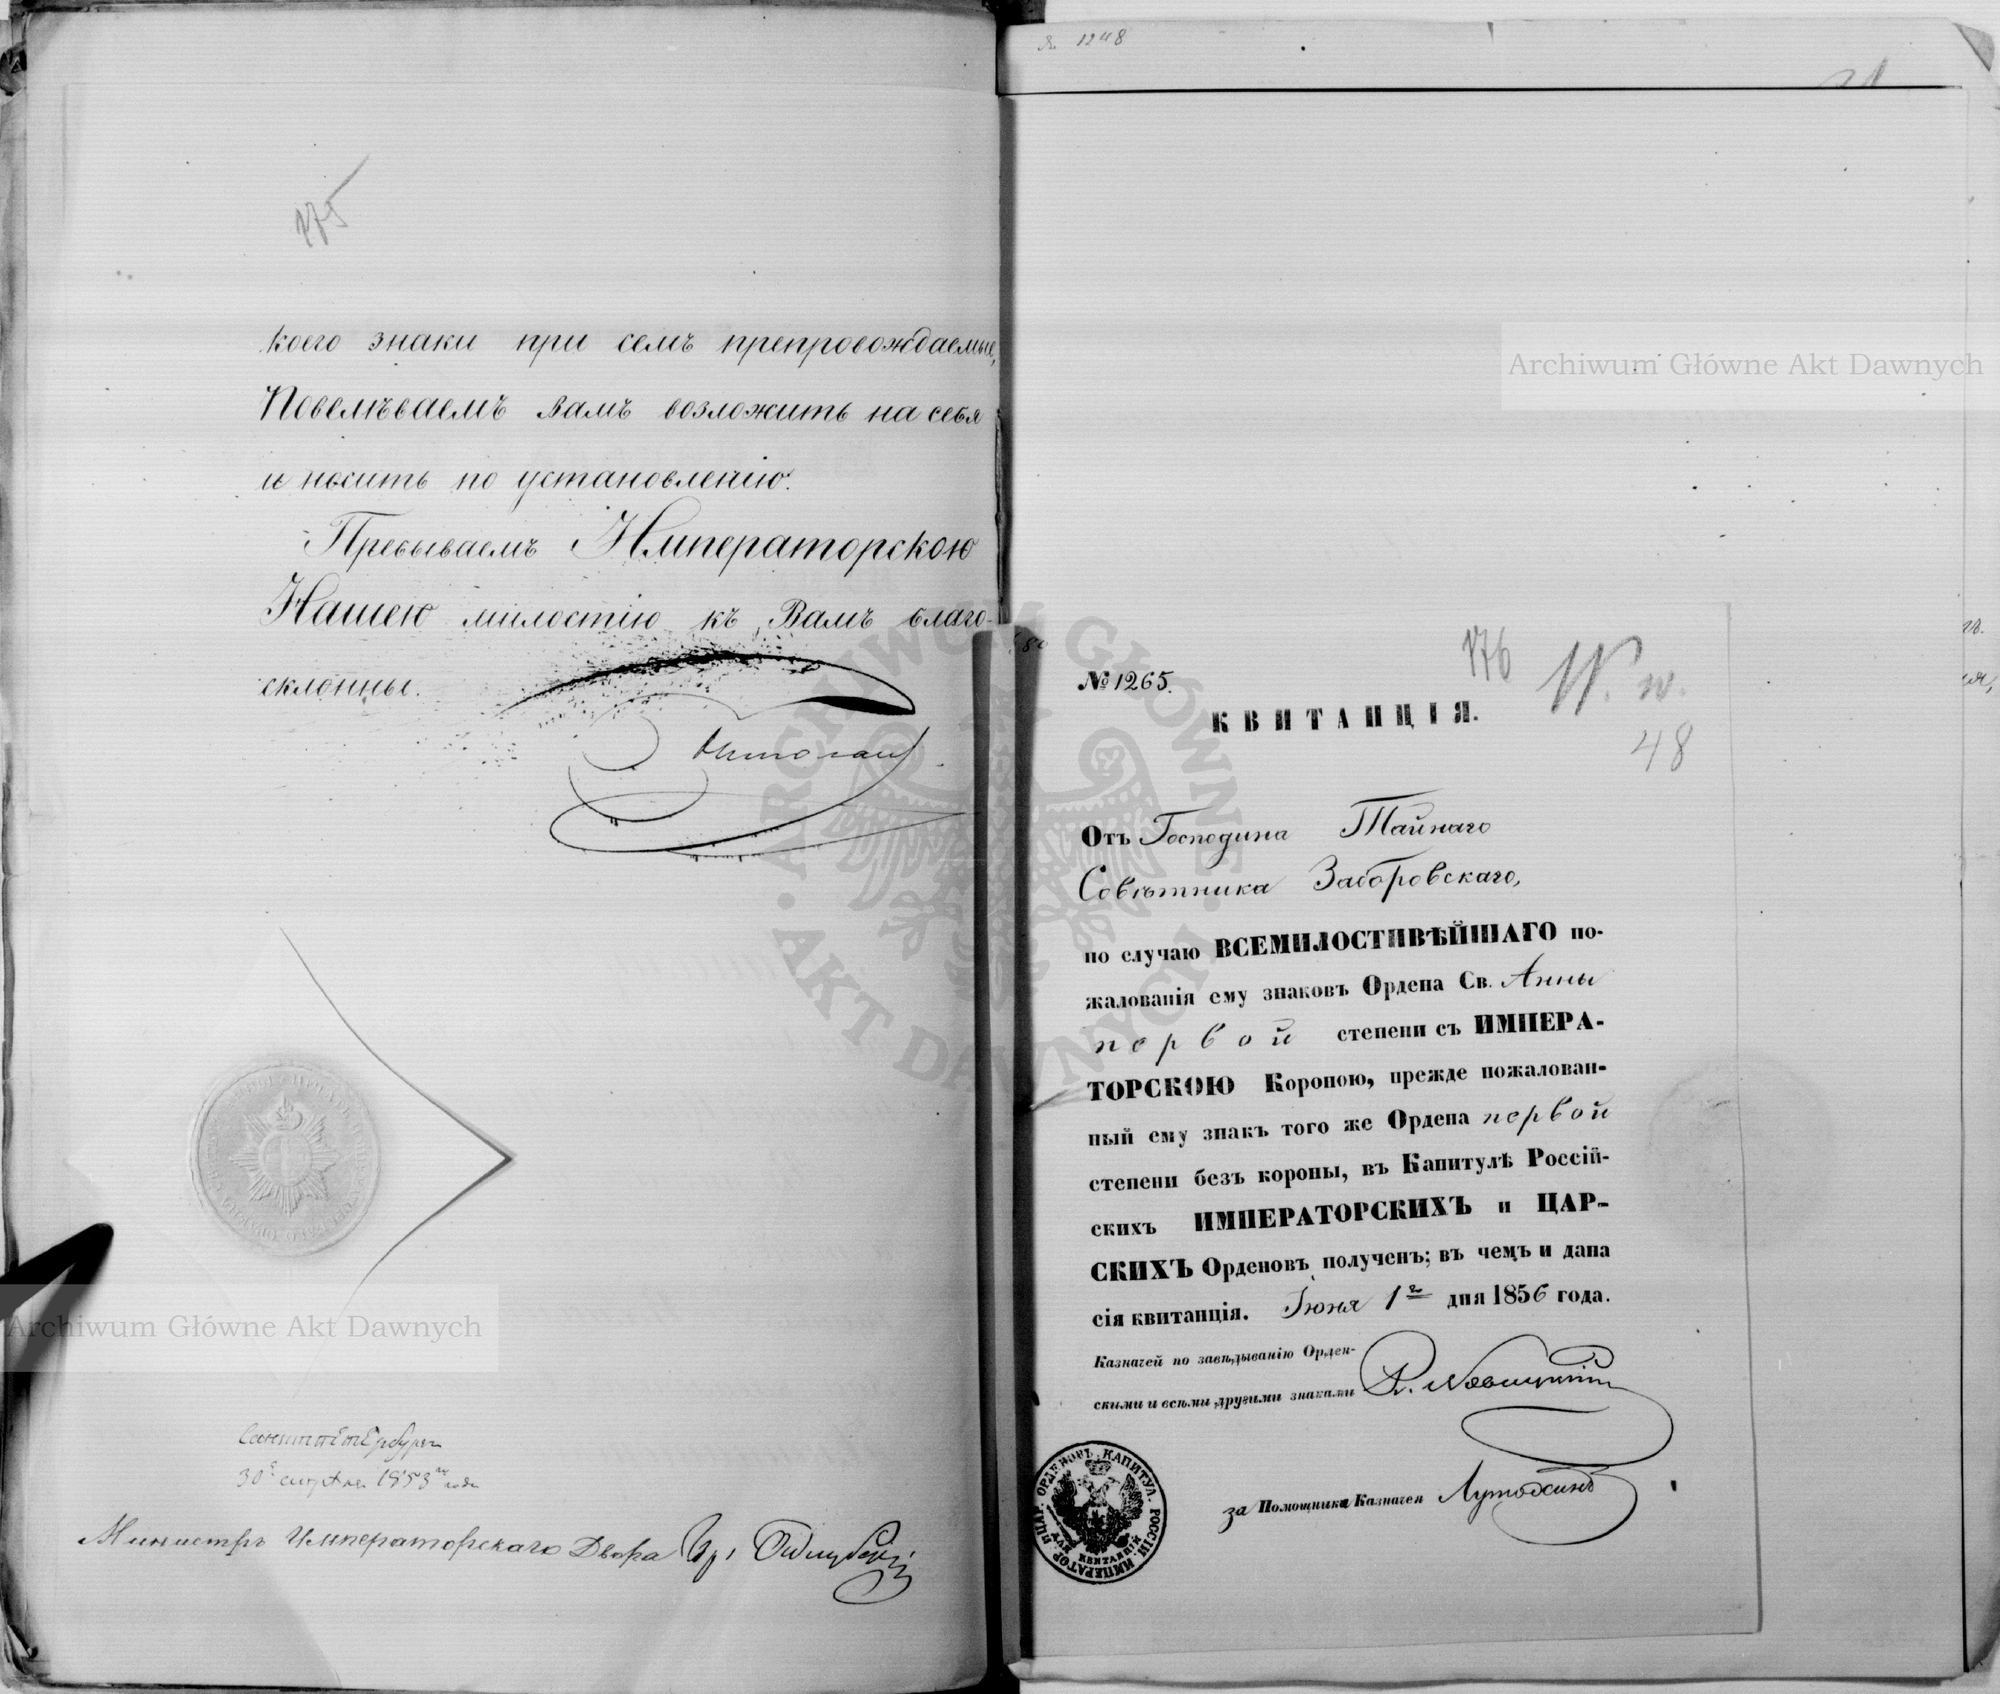 175
коего знаки при семъ препровождаемые,
Повелѣваемъ вамъ возложить на себя
и носить по установленію.
Пребываемъ Императорскою
Нашею милостію къ Вамъ благо-
склонны.
Николай
Санктпетербургъ
30го августа 1853го года
Министръ Императорскаго Двора Гр.
№ 1248
176
W. w.
48
№ 1265.
КВИТАНЦІЯ.
Отъ Господина Тайнаго
Совѣтника Заборовскаго,
по случаю ВСЕМИЛОСТИВѢЙШАГО по-
жалованія ему знаковъ Ордена Св. Анны
первой степени съ ИМПЕРА-
ТОРСКОЮ Короною, прежде пожалован-
ный ему знакъ того же Ордена первой
степени безъ короны, въ Капитулѣ Россій-
скихъ ИМПЕРАТОРСКИХЪ и ЦАР-
СКИХЪ Орденовъ полученъ; въ чемъ и дана
сія квитанція. Іюня 1го дня 1856 года.
Казначей по завѣдыванію Орден-
скими и всѣми другими знаками
за Помощника Казначея
КАПИТУЛ. РОССІЙ. ИМПЕРАТОР. И ЦАР. ОРДЕНОВЪ
ДЛЯ КВИТАНЦІЙ
Archiwum Główne Akt Dawnych
Archiwum Główne Akt Dawnych
ARCHIWUM GŁÓWNE AKT DAWNYCH